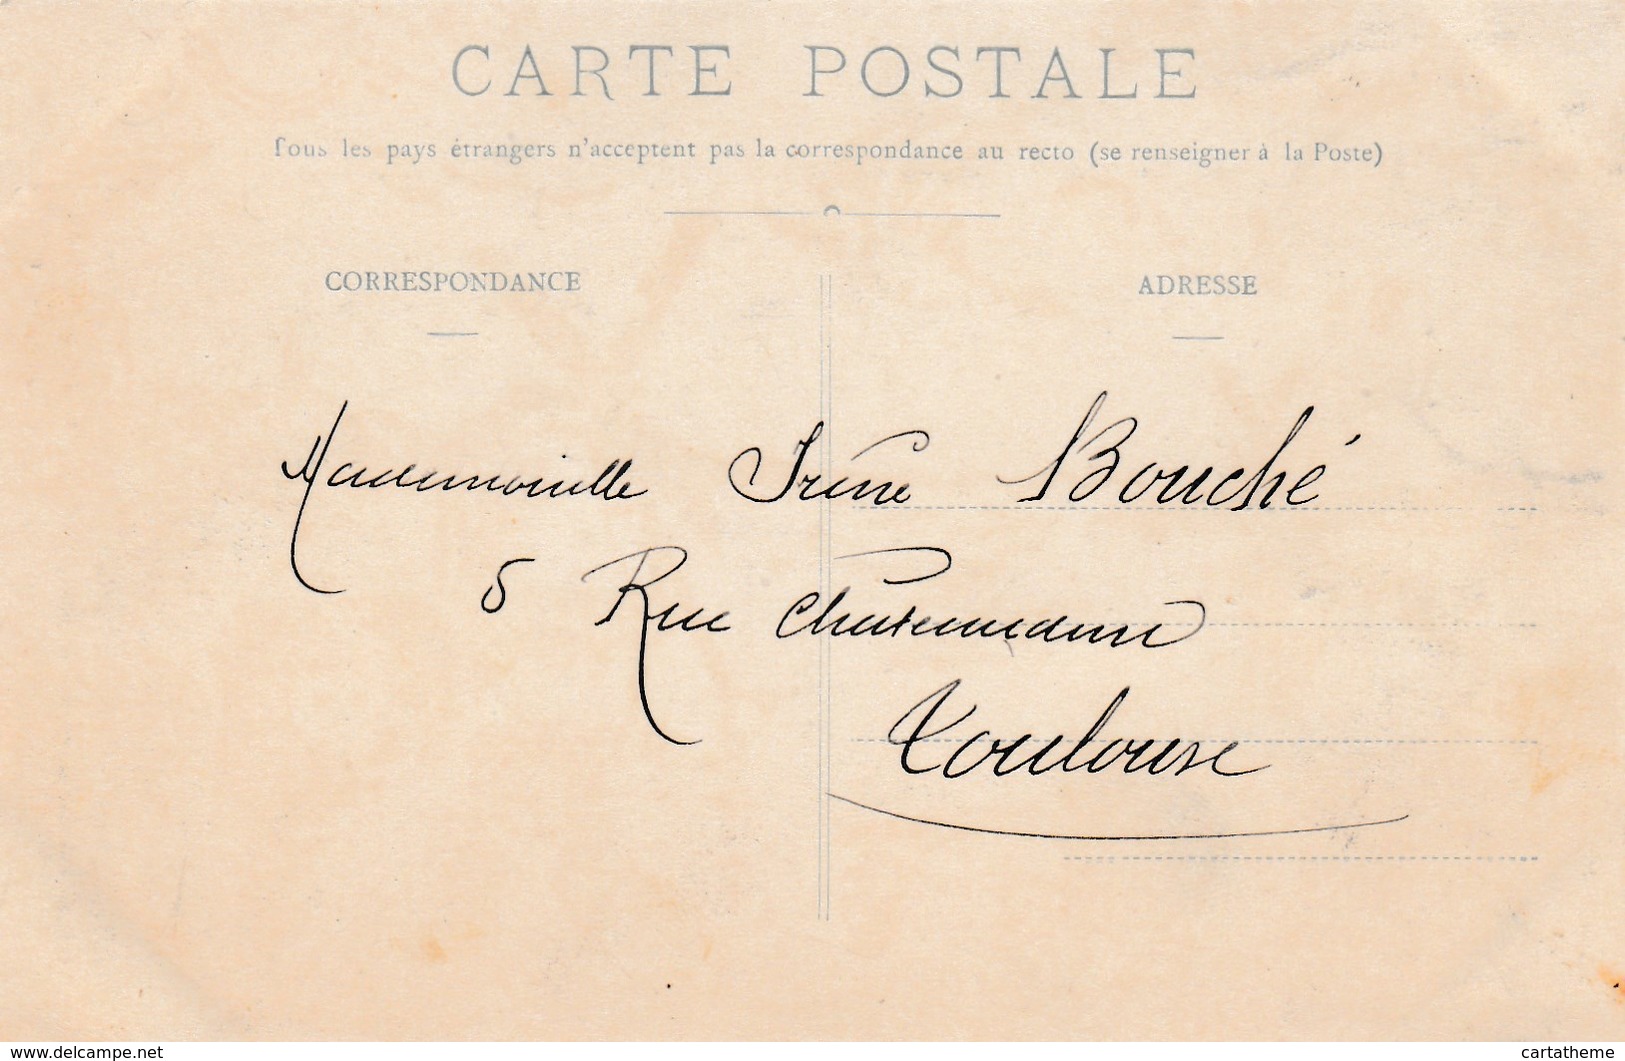 CARTE POSTALE
Tous les pays étrangers n'acceptent pas la correspondance au recto (se renseigner à la Poste)
CORRESPONDANCE
ADRESSE
Mademoiselle Irène Bouché
5 Rue
Toulouse
www.delcampe.net
cartatheme